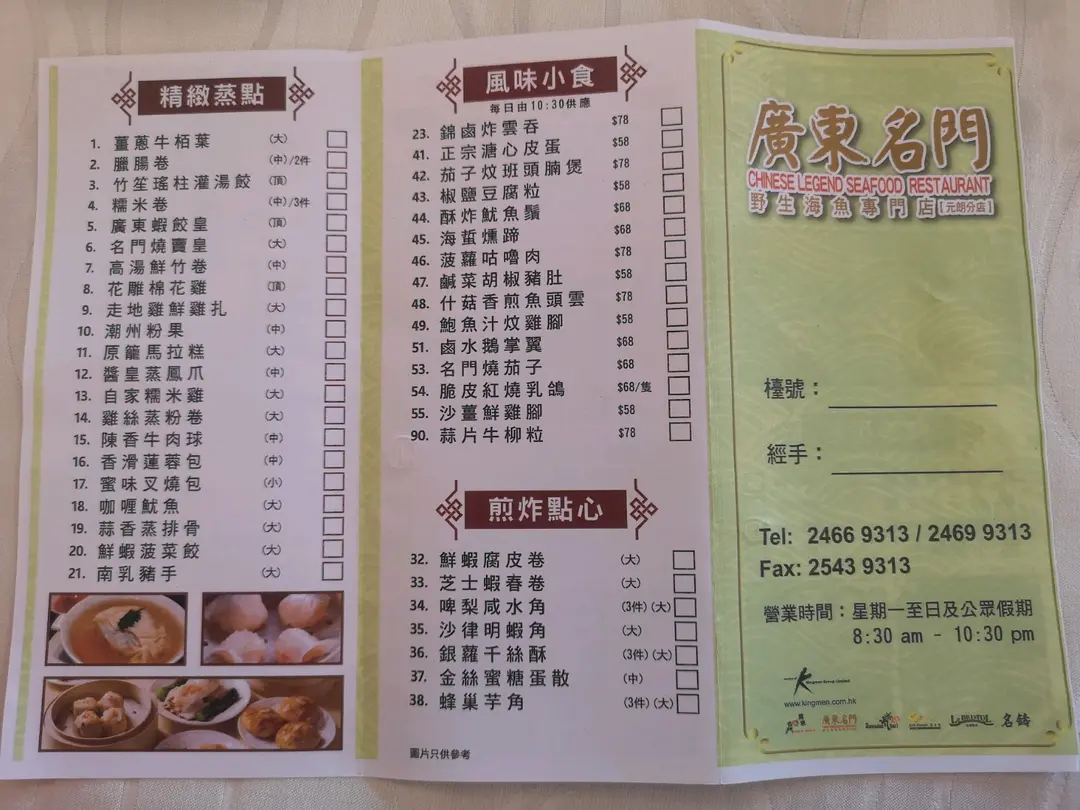 精緻蒸點
1. 薑蔥牛栢葉 (大)
2. 臘腸卷 (中)/2件
3. 竹笙瑤柱灌湯餃 (頂)
4. 糯米卷 (中)/3件
5. 廣東蝦餃皇 (頂)
6. 名門燒賣皇 (大)
7. 高湯鮮竹卷 (中)
8. 花雕棉花雞 (頂)
9. 走地雞鮮雞扎 (大)
10. 潮州粉果 (中)
11. 原籠馬拉糕 (大)
12. 醬皇蒸鳳爪 (中)
13. 自家糯米雞 (大)
14. 雞絲蒸粉卷 (大)
15. 陳香牛肉球 (中)
16. 香滑蓮蓉包 (中)
17. 蜜味叉燒包 (小)
18. 咖喱魷魚 (大)
19. 蒜香蒸排骨 (大)
20. 鮮蝦菠菜餃 (大)
21. 南乳豬手 (大)
風味小食
每日由10:30供應
23. 錦鹵炸雲吞 $78
41. 正宗溏心皮蛋 $58
42. 茄子炆班頭腩煲 $78
43. 椒鹽豆腐粒 $58
44. 酥炸魷魚鬚 $68
45. 海蜇燻蹄 $68
46. 菠蘿咕嚕肉 $78
47. 鹹菜胡椒豬肚 $58
48. 什菇香煎魚頭雲 $78
49. 鮑魚汁炆雞腳 $58
51. 鹵水鵝掌翼 $68
53. 名門燒茄子 $68
54. 脆皮紅燒乳鴿 $68/隻
55. 沙薑鮮雞腳 $58
90. 蒜片牛柳粒 $78
煎炸點心
32. 鮮蝦腐皮卷 (大)
33. 芝士蝦春卷 (大)
34. 啤梨咸水角 (3件)(大)
35. 沙律明蝦角 (大)
36. 銀蘿千絲酥 (3件)(大)
37. 金絲蜜糖蛋散 (中)
38. 蜂巢芋角 (3件)(大)
圖片只供參考
廣東名門
CHINESE LEGEND SEAFOOD RESTAURANT
野生海魚專門店【元朗分店】
檯號：
經手：
Tel: 2466 9313 / 2469 9313
Fax: 2543 9313
營業時間：星期一至日及公眾假期
8:30 am - 10:30 pm
www.kingmen.com.hk
廣東名門
名鑄